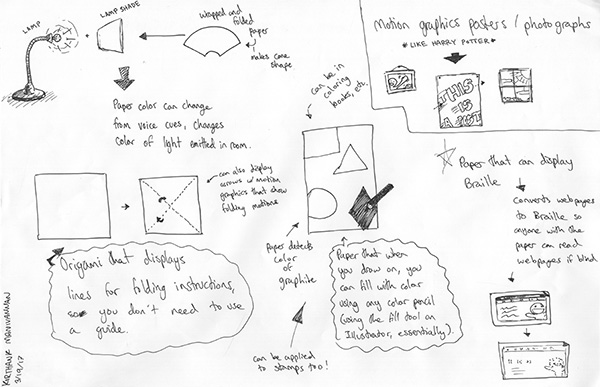 LAMP
LAMP SHADE
Wrapped and
folded
paper
makes cone
shape
Paper color can change
from voice cues, changes
color of light emitted in room.
Motion graphics posters / photographs
*LIKE HARRY POTTER*
THIS
IS
A
can be in
coloring
books, etc.
can also display
arrows w/ motion
graphics that show
folding motions
Origami that displays
lines for folding instructions,
so you don't need to use
a guide.
Paper detects
color of
graphite
can be applied
to stamps too!
Paper that when
you draw on, you
can fill with color
using any color pencil
(using the fill tool on
Illustrator, essentially).
Paper that can display
Braille
Converts webpages
to Braille so
anyone with the
paper can read
webpages if blind
3/19/17